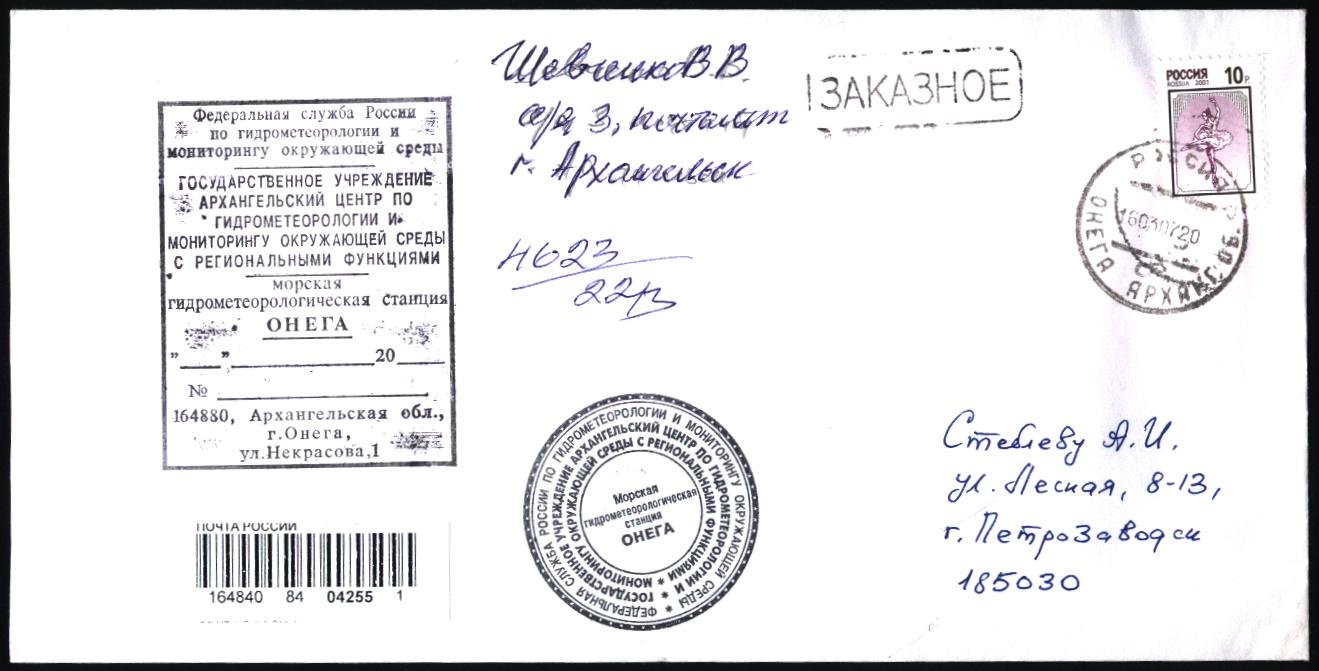 Шевченко В.В.
а/я 3, почтамт
г. Архангельск
ЗАКАЗНОЕ
РОССИЯ 10 р.
ROSSIA 2001
РОССИЯ
ОНЕГА АРХАНГ. ОБ.
16030720
Федеральная служба России
по гидрометеорологии и
мониторингу окружающей среды
ГОСУДАРСТВЕННОЕ УЧРЕЖДЕНИЕ
АРХАНГЕЛЬСКИЙ ЦЕНТР ПО
ГИДРОМЕТЕОРОЛОГИИ И
МОНИТОРИНГУ ОКРУЖАЮЩЕЙ СРЕДЫ
С РЕГИОНАЛЬНЫМИ ФУНКЦИЯМИ
морская
гидрометеорологическая станция
ОНЕГА
„ ___ ” ____________ 20 ____
№ ____________
164880, Архангельская обл.,
г.Онега,
ул.Некрасова,1
4623
22р
ФЕДЕРАЛЬНАЯ СЛУЖБА РОССИИ ПО ГИДРОМЕТЕОРОЛОГИИ И МОНИТОРИНГУ ОКРУЖАЮЩЕЙ СРЕДЫ *
ГОСУДАРСТВЕННОЕ УЧРЕЖДЕНИЕ АРХАНГЕЛЬСКИЙ ЦЕНТР ПО ГИДРОМЕТЕОРОЛОГИИ И
МОНИТОРИНГУ ОКРУЖАЮЩЕЙ СРЕДЫ С РЕГИОНАЛЬНЫМИ ФУНКЦИЯМИ *
Морская
гидрометеорологическая
станция
ОНЕГА
Степеву А.И.
ул. Лесная, 8-13,
г. Петрозаводск
185030
ПОЧТА РОССИИ
164840 84 04255 1